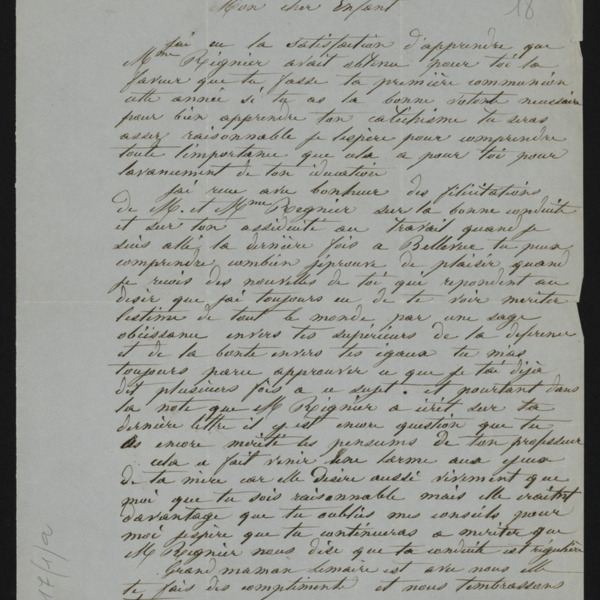 Mon cher Enfant
18
j'ai eu la satisfaction d'apprendre que
Mme Reignier avait obtenu pour toi la
faveur que tu fasse ta première communion
cette année si tu as la bonne volonté necessaire
pour bien apprendre ton catéchisme tu seras
assez raisonnable je l'espère pour comprendre
toute l'importance que cela a pour toi pour
l'avancement de ton education
j'ai recue avec bonheur des félicitations
de M. et Mme Reignier sur la bonne conduite
et sur ton assiduité au travail quand je
suis allé la dernière fois a Bellevue tu peux
comprendre combien j'éprouve de plaisir quand
je recois des nouvelles de toi qui repondent au
desir que j'ai toujours eu de te voir meriter
l'estime de tout le monde par une sage
obéissance envers tes supérieurs de la deference
et de la bonté envers tes égaux tu m'as
toujours paru approuver ce que je t'ai déjà
dit plusieurs fois a ce sujet. et pourtant dans
la note que M Reignier a écrit sur ta
dernière lettre il y est encore question que tu
as encore mérité les pensums de ton professeur
cela a fait venir une larme aux yeux
de ta mère car elle desire aussi vivement que
moi que tu sois raisonnable mais elle craint
davantage que tu oublies mes conseils pour
moi j'espère que tu continueras a meriter que
M Reignier nous dise que ta conduite est régulière
Grand maman Lemaire est avec nous elle
te fais des compliments et nous t'embrassons
17/1/2